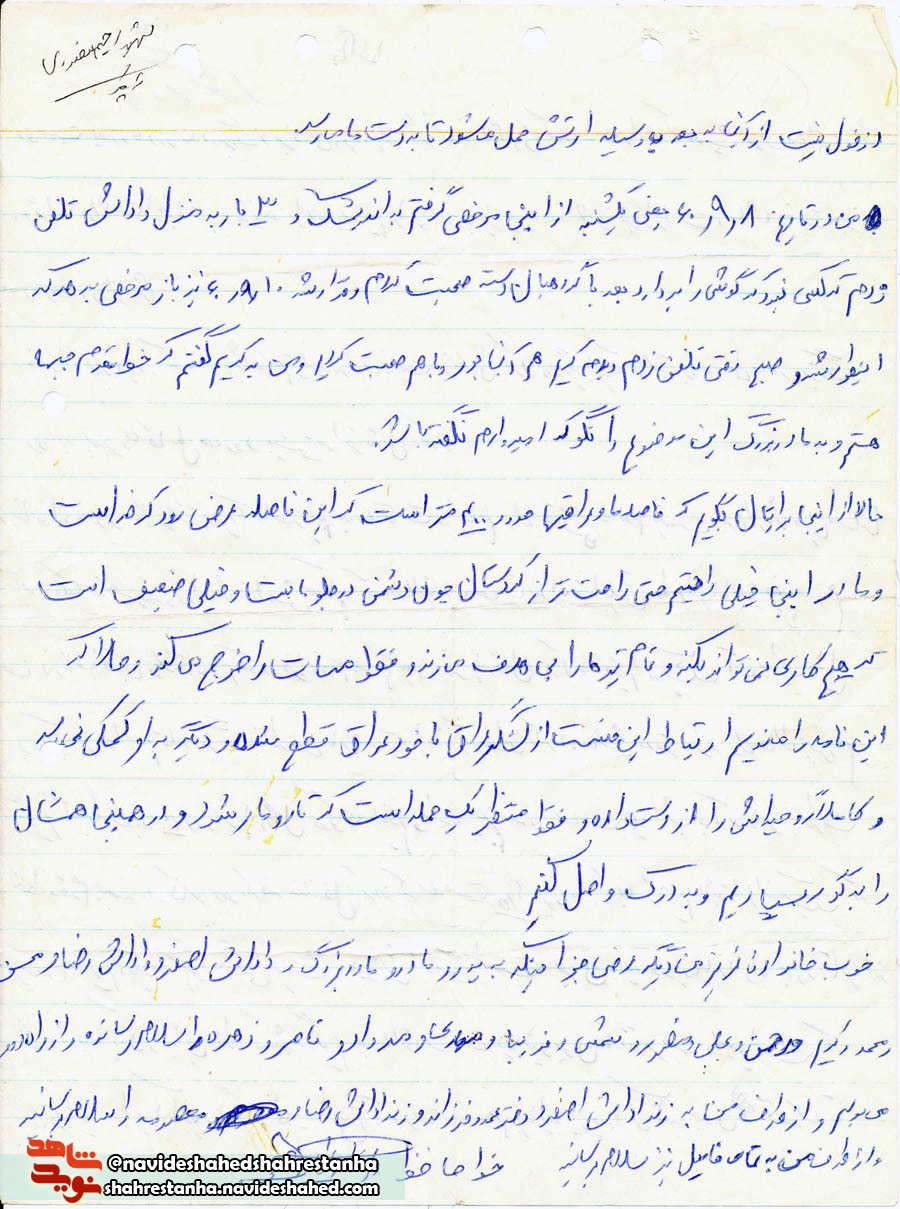 شهید رحیم صفدری
دزفول نیست از آنجا به بعد بوسیله ارتش حمل میشود تا بدست ما می‌رسد.
من در تاریخ ۶۰،۹،۸ یعنی یکشنبه از اینجا مرخصی گرفتم به اندیمشک و ۳ بار به منزل داداش تلفن
زدم که کسی نبود که گوشی را بردارد بعد با صحبت کردم و قرار شد ۶۰،۹،۱۰ نیز باز مرخصی بدهد که
اینطور شد و صبح وقتی تلفن زدم دیدم کریم هم آنجا بود و با هم صحبت کردیم و من به کریم گفتم که خط مقدم جبهه
هستم و به مادربزرگ این موضوع را نگو که امیدوارم نگفته باشد.
حالا از اینجا برایتان بگویم که فاصله ما و عراقیها حدود ۴۰۰ متر است که این فاصله عرض رود کرخه است
و ما در اینجا خیلی راحتیم حتی راحت تر از کردستان چون دشمن در جلو ماست و خیلی ضعیف است
که هیچ کاری نمی تواند بکند و تمام تیرها را بی هدف میزند و فقط مهمات را خرج می کند و حالا که
این نامه را مینویسم ارتباط این قسمت از لشگر عراق با خود عراق قطع شده و دیگر به او کمکی نمی رسد
و کاملاً روحیه‌اش را از دست داده و فقط منتظر یک حمله است که تارومار شود و در همینجا همشان
را به گور بسپاریم و به درک واصل کنیم
خوب خانواده عزیز من دیگر عرضی جز اینکه به پدر و مادر و مادربزرگ و داداش اصغر و داداش رضا و محسن
و محمد و کریم و بهمن و علی و منصور و شمسی و فریبا و و مهرداد و ناصر و زهره را سلام رسانده و از راه دور
می بوسم و از طرف من به زن داداش اصغر و دختر عمه فرزانه و زن داداش رضا و معصومه را سلام برسانید
و از طرف من به تمام فامیل نیز سلام برسانید خداحافظ
@navideshahedshahrestanha
shahrestanha.navideshahed.com
نوید شاهد